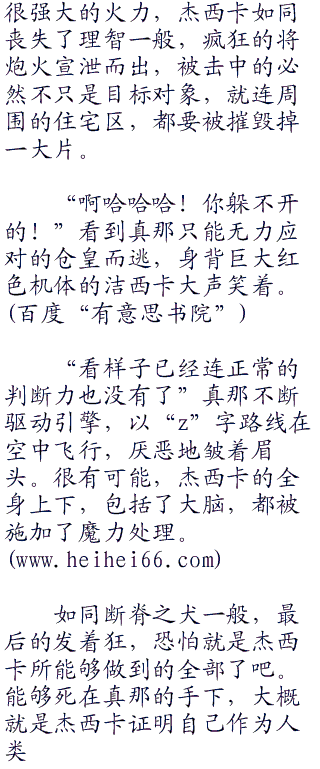 很强大的火力，杰西卡如同
丧失了理智一般，疯狂的将
炮火宣泄而出，被击中的必
然不只是目标对象，就连周
围的住宅区，都要被摧毁掉
一大片。
“啊哈哈哈！你躲不开
的！”看到真那只能无力应
对的仓皇而逃，身背巨大红
色机体的洁西卡大声笑着。
(百度“有意思书院”)
“看样子已经连正常的
判断力也没有了”真那不断
驱动引擎，以“z”字路线在
空中飞行，厌恶地皱着眉
头。很有可能，杰西卡的全
身上下，包括了大脑，都被
施加了魔力处理。
(www.heihei66.com)
如同断脊之犬一般，最
后的发着狂，恐怕就是杰西
卡所能够做到的全部了吧。
能够死在真那的手下，大概
就是杰西卡证明自己作为人
类